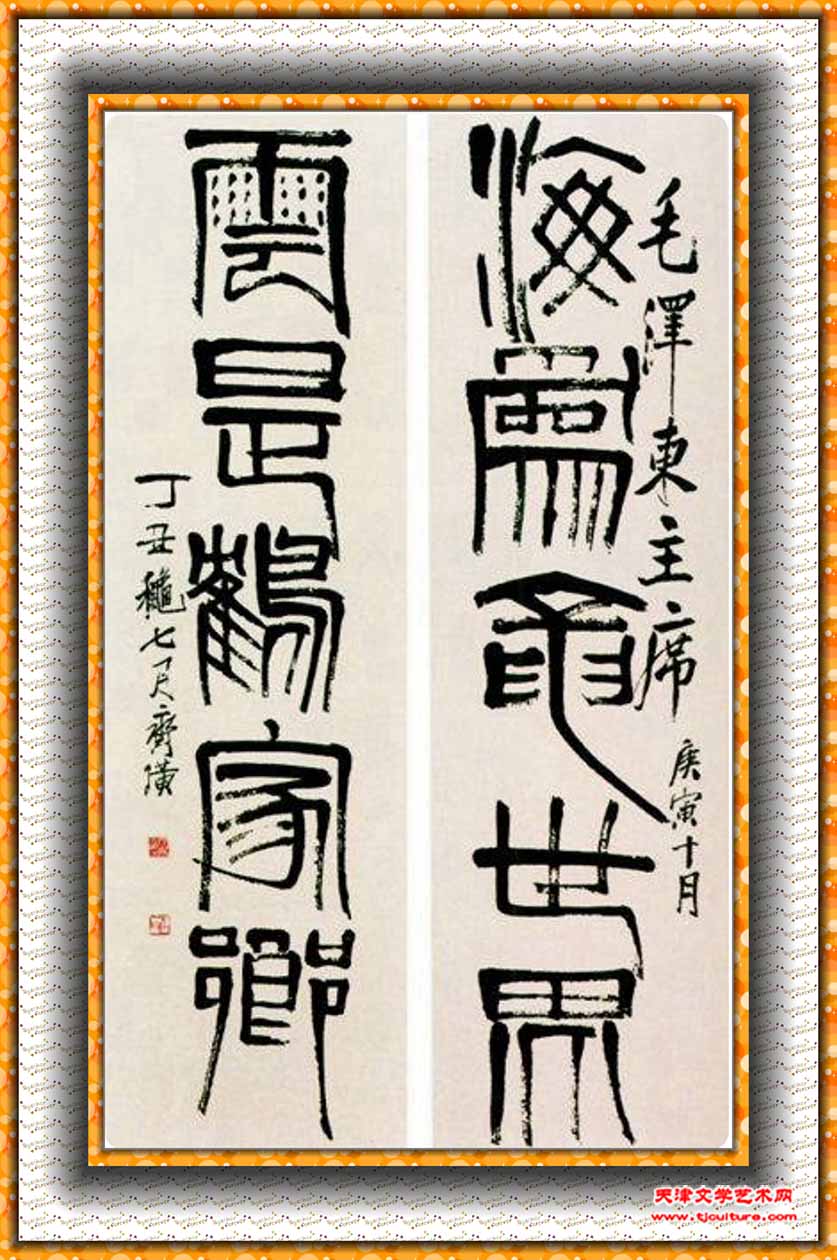 毛澤東主席
庚寅十月
海為龍世界
雲是鶴家鄉
丁丑龝七月齊璜
天津文学艺术网
www.tjculture.com